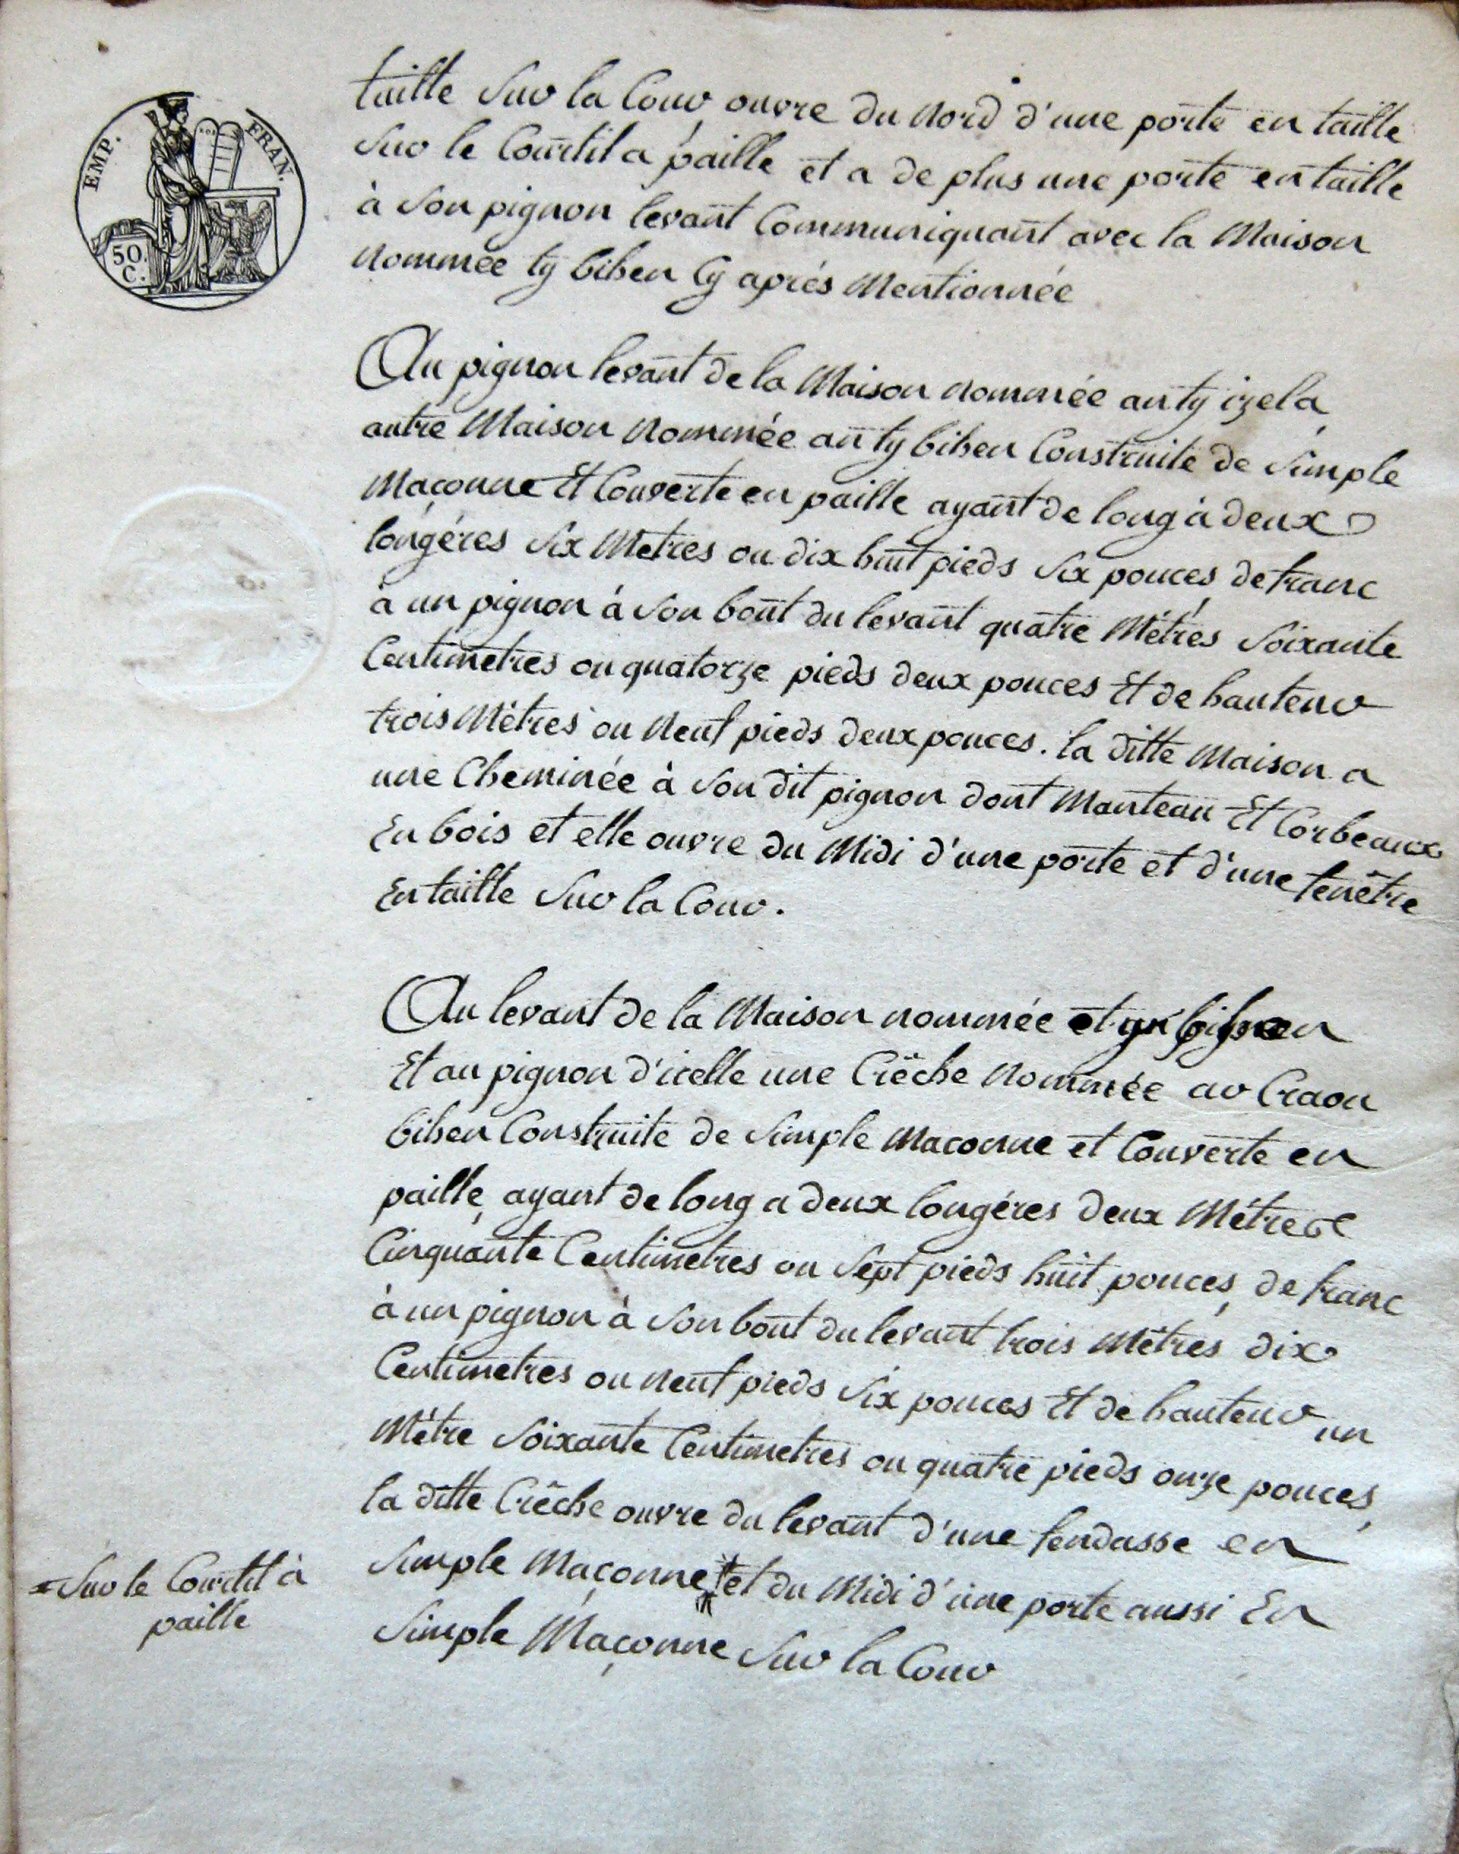 EMP. FRAN.
50.
C.
taille Sur la Cour, ouvre du Nord d'une porte en taille
Sur le Courtil a paille et a de plus une porte en taille
à Son pignon levant Communiquant avec la Maison
Nommée ty bihen Cy après Mentionnée
Au pignon levant de la Maison nommée an ty izela,
autre Maison Nommée an ty bihen Construite de Simple
Maçonne Et Couverte en paille ayant de long à deux
longéres Six Metres ou dix huit pieds Six pouces, de franc
à un pignon à Son bout du levant quatre Métres Soixante
Centimetres ou quatorze pieds deux pouces Et de hauteur
trois Métres ou Neuf pieds deux pouces. la ditte Maison a
une Cheminée à Son dit pignon dont Manteau Et Corbeaux
En bois et elle ouvre du Midi d'une porte et d'une fenêtre
En taille Sur la Cour.
Au levant de la Maison nommée bihen
Et au pignon d'icelle une Crêche Nommée ar Craou
bihen Construite de Simple Maconne et Couverte en
paille, ayant de long a deux longéres Deux Métres
Cinquante Centimetres ou Sept pieds huit pouces, de franc
à un pignon à Son bout du levant trois Métres, dix
Centimetres ou Neuf pieds Six pouces Et de hauteur un
Métre Soixante Centimetres ou quatre pieds onze pouces,
la ditte Crêche ouvre du levant d'une fendasse en
Simple Maçonne * et du Midi d'une porte aussi En
Simple Maçonne Sur la Cour
* Sur le Courtil à
paille